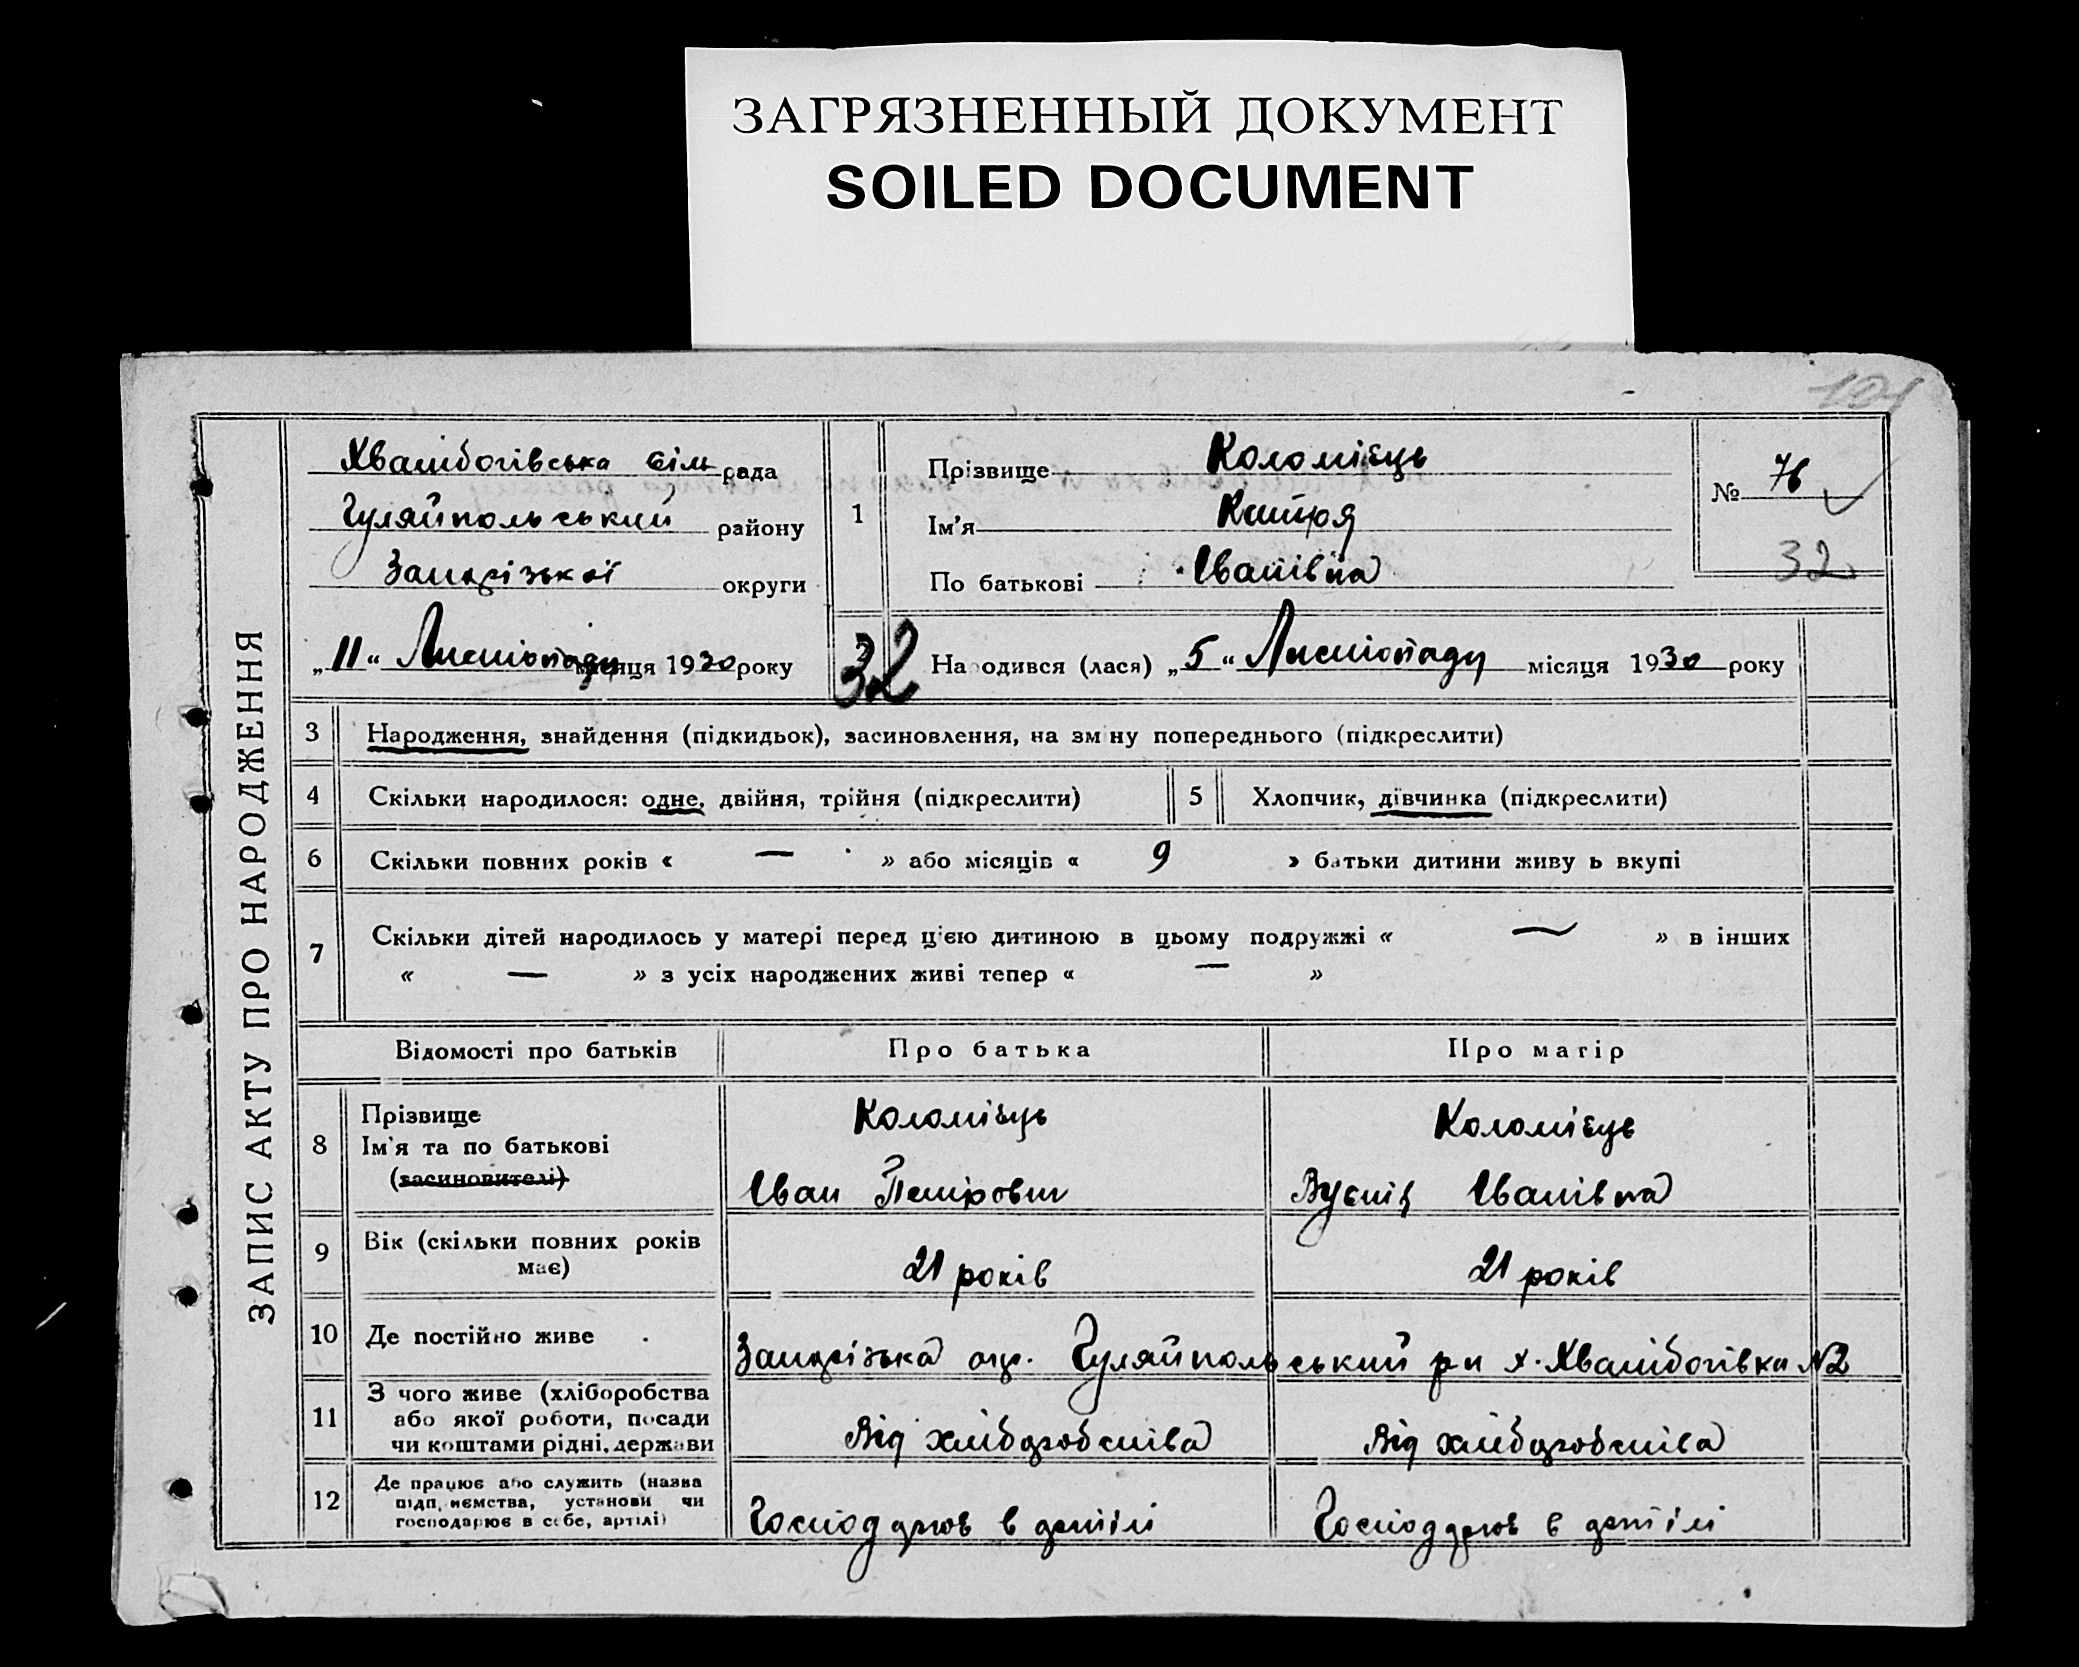 ЗАГРЯЗНЕННЫЙ ДОКУМЕНТ
SOILED DOCUMENT
121
ЗАПИС АКТУ ПРО НАРОДЖЕННЯ
сіль рада
Гуляйпольський району
Запорізької округи
„11“ Листопаду місяця 1930 року
1
Прізвище Коломієць
Ім'я Катря
По батькові Іванівна
№ 76
32
32 Народився (лася) „5“ Листопаду місяця 1930 року
3 Народження, знайдення (підкидьок), засиновлення, на зміну попереднього (підкреслити)
4 Скільки народилося: одне, двійня, трійня (підкреслити)
5 Хлопчик, дівчинка (підкреслити)
6 Скільки повних років « — » або місяців « 9 » батьки дитини живуть вкупі
7 Скільки дітей народилось у матері перед цією дитиною в цьому подружжі « — » в інших
« — » з усіх народжених живі тепер « — »
Відомості про батьків Про батька Про матір
8 Прізвище
Ім'я та по батькові
(засиновителі)
Коломієць
Іван Петрович
Коломієць
Іванівна
9 Вік (скільки повних років
має)
21 років
21 років
10 Де постійно живе
Запорізька окр. Гуляйпольський р-н х. №2
11 З чого живе (хліборобства
або якої роботи, посади
чи коштами рідні, держави
Від хліборобства
Від хліборобства
12 Де працює або служить (назва
підприємства, установи чи
господарює в себе, артілі)
Господарює в артілі
Господарює в артілі